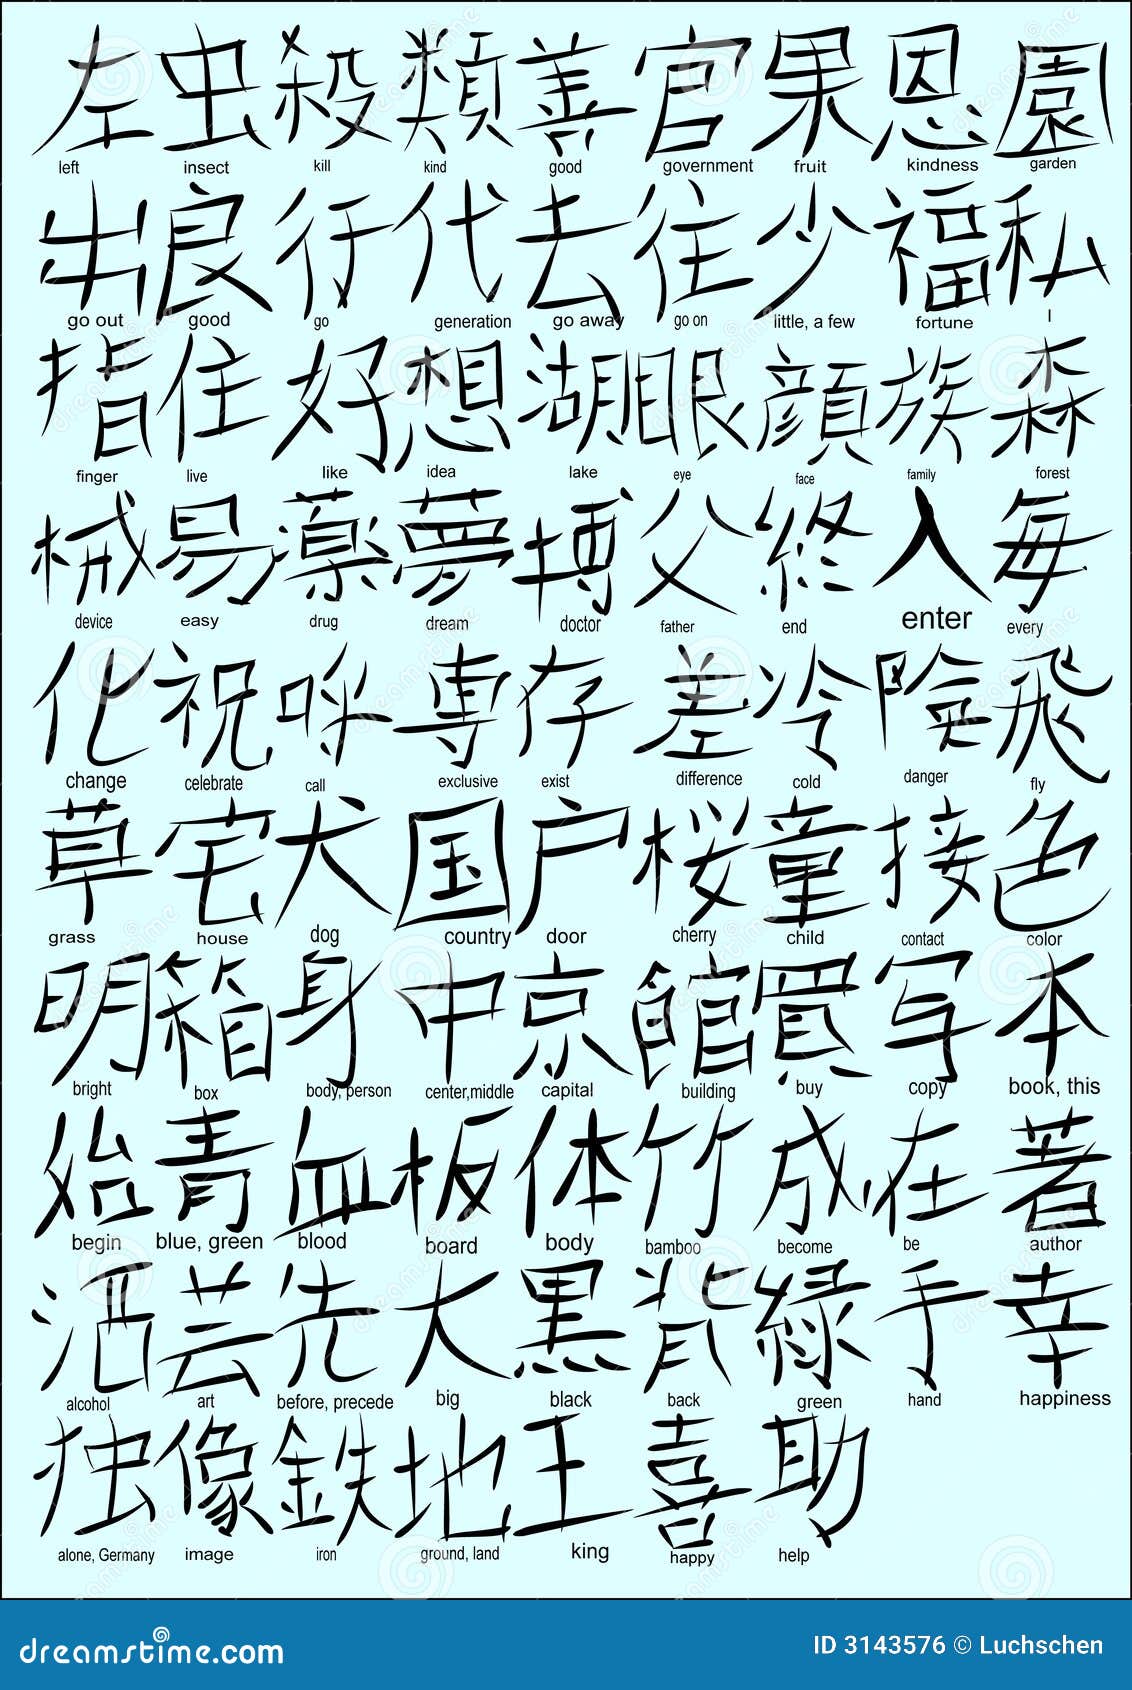 左 虫 殺 類 善 官 果 恩 園
left insect kill kind good government fruit kindness garden
出 良 行 代 去 往 少 福 私
go out good go generation go away go on little, a few fortune I
指 住 好 想 湖 眼 顔 族 森
finger live like idea lake eye face family forest
械 易 薬 夢 博 父 終 入 毎
device easy drug dream doctor father end enter every
化 祝 呼 専 存 差 冷 険 飛
change celebrate call exclusive exist difference cold danger fly
草 宅 犬 国 戸 桜 童 接 色
grass house dog country door cherry child contact color
明 箱 身 中 京 館 買 写 本
bright box body, person center,middle capital building buy copy book, this
始 青 血 板 体 竹 成 在 著
begin blue, green blood board body bamboo become be author
酒 芸 先 大 黒 背 緑 手 幸
alcohol art before, precede big black back green hand happiness
独 像 鉄 地 王 喜 助
alone, Germany image iron ground, land king happy help
dreamstime.com ID 3143576 © Luchschen